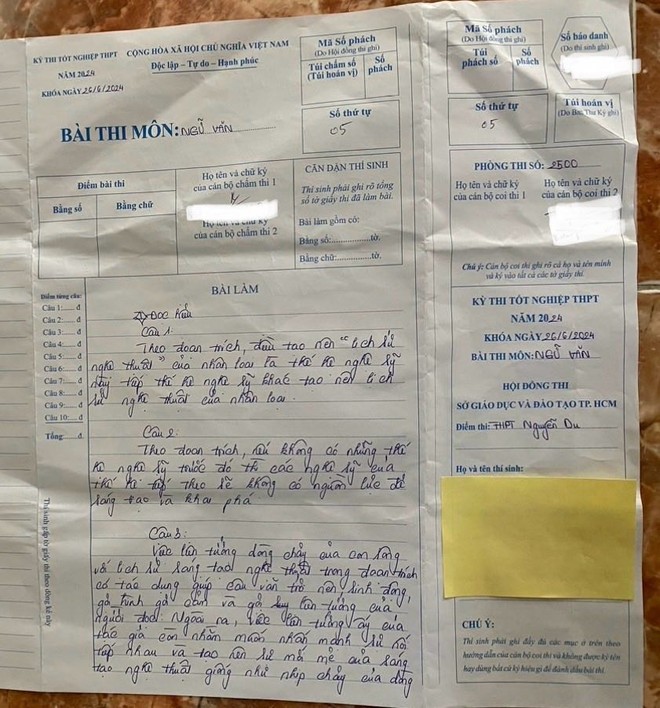 KỲ THI TỐT NGHIỆP THPT
NĂM 2024
KHÓA NGÀY 26/6/2024
CỘNG HÒA XÃ HỘI CHỦ NGHĨA VIỆT NAM
Độc lập – Tự do – Hạnh phúc
BÀI THI MÔN: NGỮ VĂN
Mã Số phách
(Do Hội đồng thi ghi)
Túi chấm số
(Túi hoán vị)
Số phách
Số thứ tự
05
Điểm bài thi
Bằng số
Bằng chữ
Họ tên và chữ ký
của cán bộ chấm thi 1
Họ tên và chữ ký
của cán bộ chấm thi 2
CĂN DẶN THÍ SINH
Thí sinh phải ghi rõ tổng
số tờ giấy thi đã làm bài.
Bài làm gồm có:
Bằng số:..............tờ.
Bằng chữ:..............tờ.
Điểm từng câu:
Câu 1:.... đ
Câu 2:.... đ
Câu 3:.... đ
Câu 4:.... đ
Câu 5:.... đ
Câu 6:.... đ
Câu 7:.... đ
Câu 8:.... đ
Câu 9:.... đ
Câu 10:.... đ
Tổng: đ
Thí sinh gấp tờ giấy thi theo dòng kẻ này
BÀI LÀM
ĐỌC HIỂU
Câu 1:
Theo đoạn trích, điều tạo nên "lịch sử
nghệ thuật" của nhân loại là thế hệ nghệ sỹ
này tiếp thế hệ nghệ sỹ khác tạo nên lịch
sử nghệ thuật của nhân loại.
Câu 2:
Theo đoạn trích, nếu không có những thế
hệ nghệ sỹ trước đó thì các nghệ sỹ của
thế hệ tiếp theo sẽ không có nguồn lực để
sáng tạo và khai phá
Câu 3:
Việc liên tưởng dòng chảy của con sông
với lịch sử sáng tạo nghệ thuật trong đoạn trích
có tác dụng giúp câu văn trở nên sinh động,
gợi hình gợi cảm và gợi sự liên tưởng của
người đọc. Ngoài ra, việc liên tưởng ấy của
tác giả còn nhằm muốn nhấn mạnh sự nối
tiếp nhau và tạo nên sự mới mẻ của sáng
tạo nghệ thuật giống như nhịp chảy của dòng
Mã Số phách
(Do Hội đồng thi ghi)
Túi
phách số
Số
phách
Số báo danh
(Do thí sinh ghi)
Số thứ tự
05
Túi hoán vị
(Do Ban Thư Ký ghi)
PHÒNG THI SỐ: 2500
Họ tên và chữ ký
của cán bộ coi thi 1
Họ tên và chữ ký
của cán bộ coi thi 2
Chú ý: Cán bộ coi thi ghi rõ cả họ và tên mình
và ký vào tất cả các tờ giấy thi.
KỲ THI TỐT NGHIỆP THPT
NĂM 2024
KHÓA NGÀY 26/6/2024
BÀI THI MÔN: NGỮ VĂN
HỘI ĐỒNG THI
SỞ GIÁO DỤC VÀ ĐÀO TẠO TP. HCM
Điểm thi: THPT Nguyễn Du
Họ và tên thí sinh:
CHÚ Ý:
Thí sinh phải ghi đầy đủ các mục ở trên theo
hướng dẫn của cán bộ coi thi và không được ký tên
hay dùng bất cứ ký hiệu gì để đánh dấu bài thi.